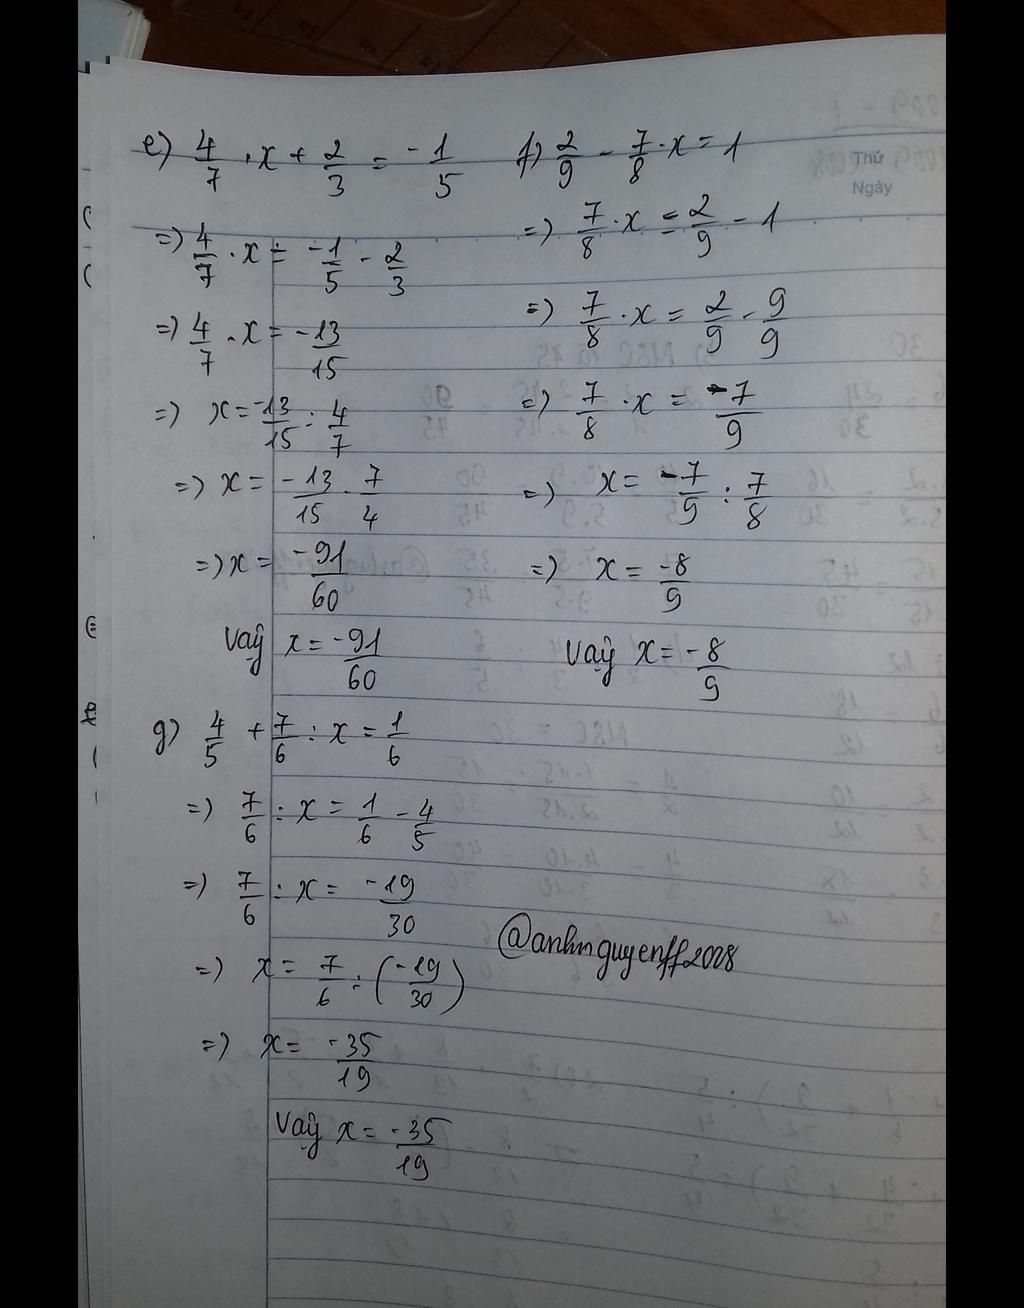 e) 4/7 . x + 2/3 = -1/5
=> 4/7 . x = -1/5 - 2/3
=> 4/7 . x = -13/15
=> x = -13/15 : 4/7
=> x = -13/15 . 7/4
=> x = -91/60
Vậy x = -91/60
f) 2/9 - 7/8 . x = 1
=> 7/8 . x = 2/9 - 1
=> 7/8 . x = 2/9 - 9/9
=> 7/8 . x = -7/9
=> x = -7/9 : 7/8
=> x = -8/9
Vậy x = -8/9
g) 4/5 + 7/6 : x = 1/6
=> 7/6 : x = 1/6 - 4/5
=> 7/6 : x = -19/30
=> x = 7/6 : (-19/30)
=> x = -35/19
Vậy x = -35/19
@anhnguyenff2008
Thứ
Ngày